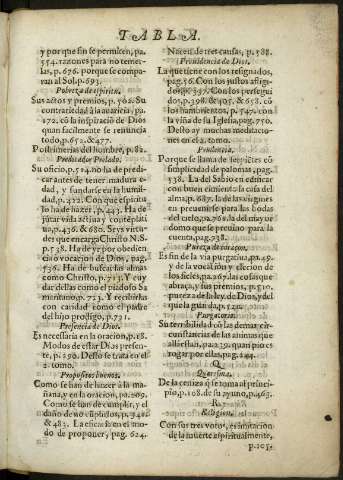 TABLA.
y por que fin se permiten, pa.
554. razones para no temer-
las, p. 676. porque se compa-
ran al Sol. p. 693.
Pobreza de espiritu.
Sus actos y premios, p. 502. Su
contrariedad à avaricia, pa.
172. cõ la inspiraciõ de Dios
quan facilmente se renuncia
todo, p. 652. & 677.
Postrimerias del hombre, p. 82.
Predicador Prelado.
Su oficio, p. 514. no ha de predi-
car antes de tener madura e-
dad, y fundarse en la humil-
dad, p. 422. Con que espiritu
lo ha de hazer, p. 443. Ha de
jũtar vida activa y contẽplati
ua, p. 436. & 680. Seys virtu-
des que encarga Christo N. S.
p. 538. Ha de yr por obedien
cia o vocacion de Dios, pag.
536. Ha de buscar las almas
como Christo, p. 713. Y cuy
dar dellas como el piadoso Sa
maritano, p. 723. Y recibirlas
con caridad como el padre
del hijo prodigo, p. 731.
Presencia de Dios.
Es necessaria en la oracion, p. 18.
Modos de estar Dios presen-
te, p. 290. Desto se trata en el
2. tomo.
Propositos buenos.
Como se han de hazer à la ma-
ñana, y en la oracion, pa. 209.
Como se han de cumplir, y el
daño de no cũplirlos, p. 348.
& 483. La eficacia en el mo-
do de proponer, pag. 624.
Nacen de tres causas, p. 588.
Prouidencia de Dios.
La que tiene con los resignados,
pag. 56. Con los justos afligi-
dos p. 397. Con los persegui
dos, p. 398. & 405. & 658. cõ
los hambrientos, p. 547. con
la viña de su Iglesia, pag. 750.
Desto ay muchas meditacio-
nes en el 2. tomo.
Prudencia.
Porque se llama de serpiẽtes cõ
simplicidad de palomas, pag.
538. La del Sabio en edificar
con buen cimiento la casa del
alma, p. 687. la de las virgines
en preuenirse para las bodas
del cielo, pa. 769. la del mayor
domo que se preuino para la
cuenta, pag. 738.
Pureza de coraçon.
Es fin de la via purgatiua, pa. 49.
y de la vocacion y eleccion de
los fieles, pa. 267. las cosas que
abraça, y sus premios, p. 510.
pureza de la ley de Dios, y del
que la guarda, p. 520.
Purgatorio.
Su terribilidad cõ las demas cir-
cunstancias de las animas que
alli estan, pa. 239. quan pio es
rogar por ellas, pag. 244.
Q
Quaresma.
De la ceniza q̃ se toma al princi-
pio, p. 108. de su ayuno, p. 463.
R.
Religion.
Con sus tres votos, es imitacion
de la muerte espiritualmente,
p. 105.